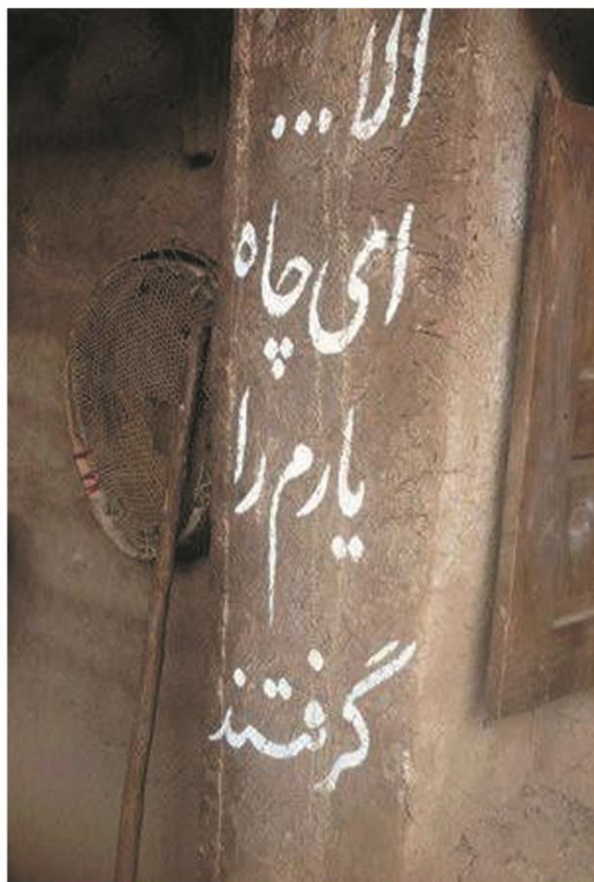 الا ...
ای چاه
یارم را
گرفتند